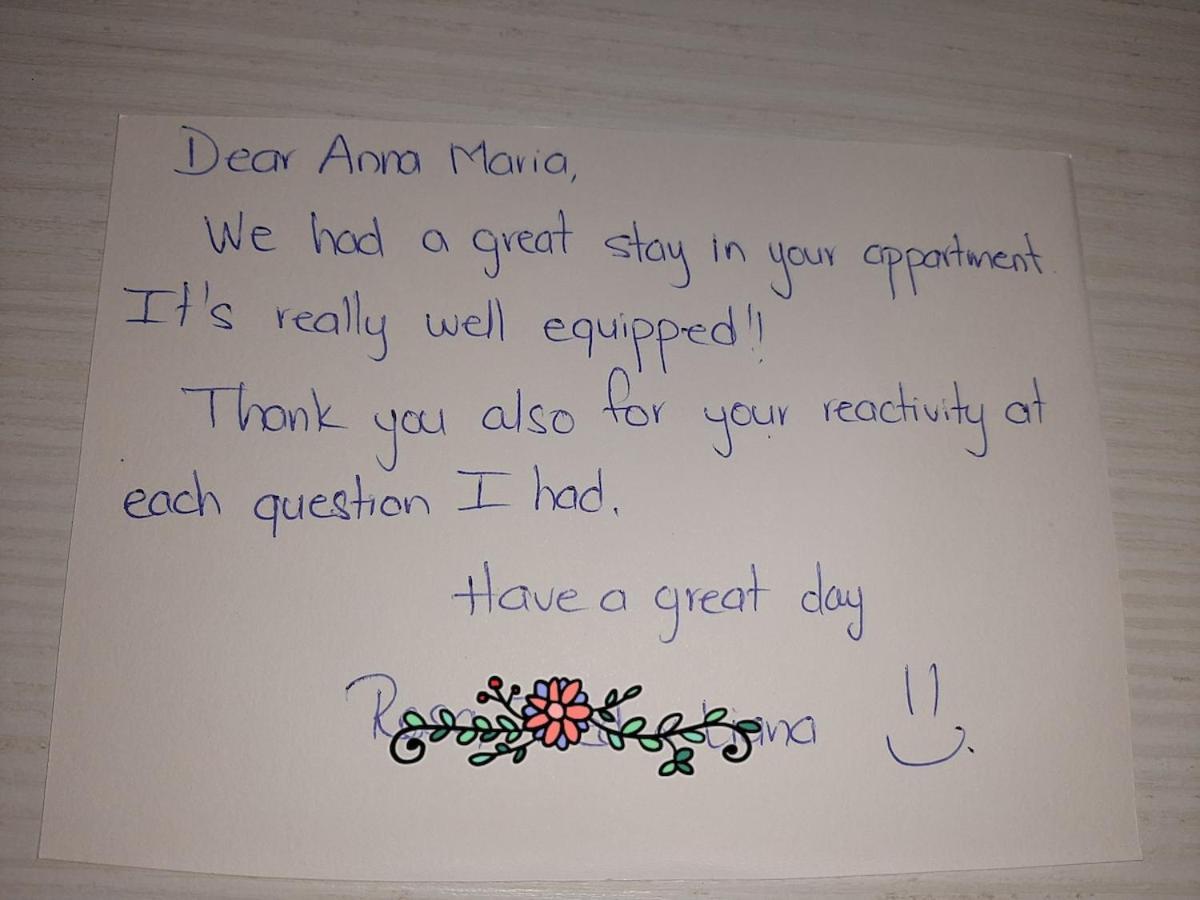 Dear Anna Maria,
We had a great stay in your appartment.
It's really well equipped!!
Thank you also for your reactivity at
each question I had.
Have a great day